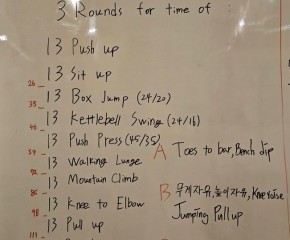 3 Rounds for time of :
13 Push up
13 Sit up
26
13 Box Jump (24/20)
39
13 Kettlebell Swing (24/16)
13 Push Press (45/35)
A Toes to bar, Bench dip
13 Walking Lunge
13 Mountain Climb
B 무게자유, 높이자유, Knee raise
13 Knee to Elbow
Jumping Pull up
13 Pull up